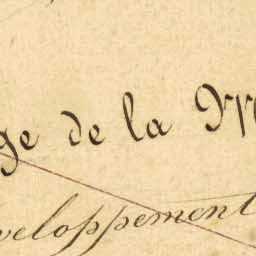 ge de la M
veloppement